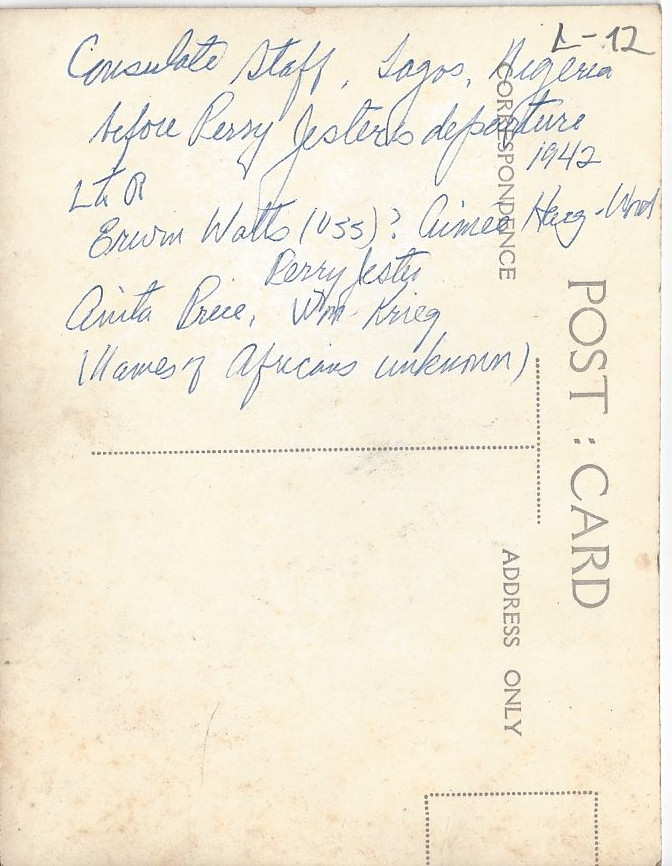 L-12
Consulate Staff, Lagos, Nigeria
before Perry Jester's departure
1942
L to R
Erwin Watts (OSS)? Aimée
Perry Jester
Anita Price, Wm Krieg
(Names of Africans unknown)
CORRESPONDENCE
POST : CARD
ADDRESS ONLY